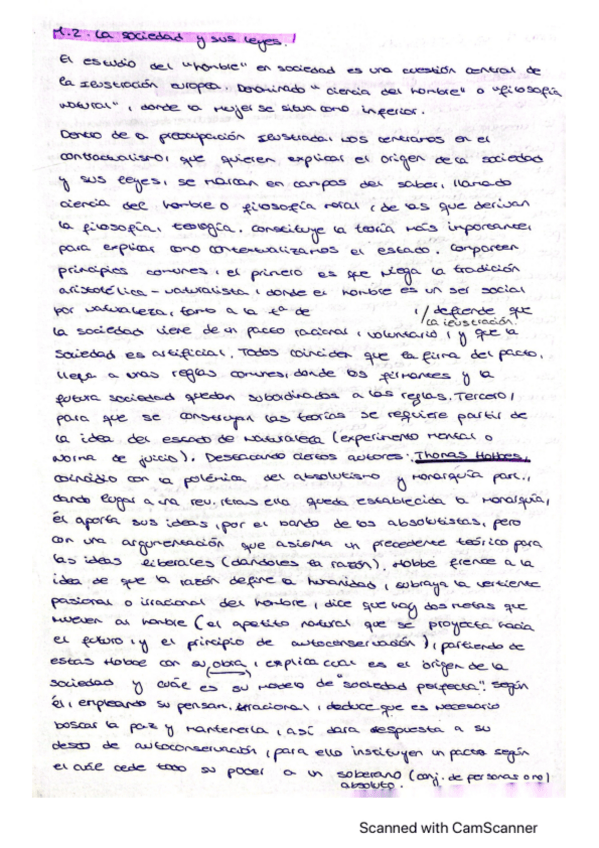 1.2. La sociedad y sus leyes.
El estudio del "hombre" en sociedad es una cuestión central de
la ilustración europea. Denominado "ciencia del hombre" o "filosofía
natural", donde la mujer se situa como inferior.
Dentro de a preocupación ilustrada, nos centramos en el
contractualismo, que quieren explicar el origen de la sociedad
y sus leyes, se marcan en campos del saber, llamado
ciencia del hombre o filosofía moral, de las que derivan
la filosofía, teología. Constituye la teoría más importante,
para explicar como contextualizamos el estado. Comparten
principios comunes, el primero es que niega la tradición
aristotélica-naturalista, donde el hombre es un ser social
por naturaleza, tomo a la tª de , / defiende que
la ilustración.
la sociedad viene de un pacto racional, voluntario, y que la
sociedad es artificial. Todos coinciden que la firma del pacto,
llega a unas reglas comunes, donde los firmantes y la
futura sociedad quedan subordinados a las reglas. Tercero,
para que se construyan las teorías se requiere partir de
la idea del estado de naturaleza (experimento mental o
norma de juicio). Destacando ciertos autores: Thomas Hobbes,
coincidio con la polémica del absolutismo y monarquía parl.,
dando lugar a una rev., tras ella queda establecida la monarquía,
él aporta sus ideas, por el bando de los absolutistas, pero
con una argumentación que asienta un precedente teórico para
las ideas liberales (dandoles la razón). Hobbe frente a la
idea de que la razón define la humanidad, subraya la vertiente
pasional o irracional del hombre, dice que hay dos notas que
mueven al hombre (el apetito natural que se proyecta hacia
el futuro, y el principio de autoconservación), partiendo de
estas Hobbe con su obra, explica cual es el origen de la
sociedad y cuál es su modelo de "sociedad perfecta". Según
él, empleando su pensan. racional, deduce que es necesario
buscar la paz y mantenerla, así dara respuesta a su
deseo de autoconservación, para ello instituyen un pacto según
el cuál cede todo su poder a un soberano (conj. de personas o no)
absoluto.
Scanned with CamScanner